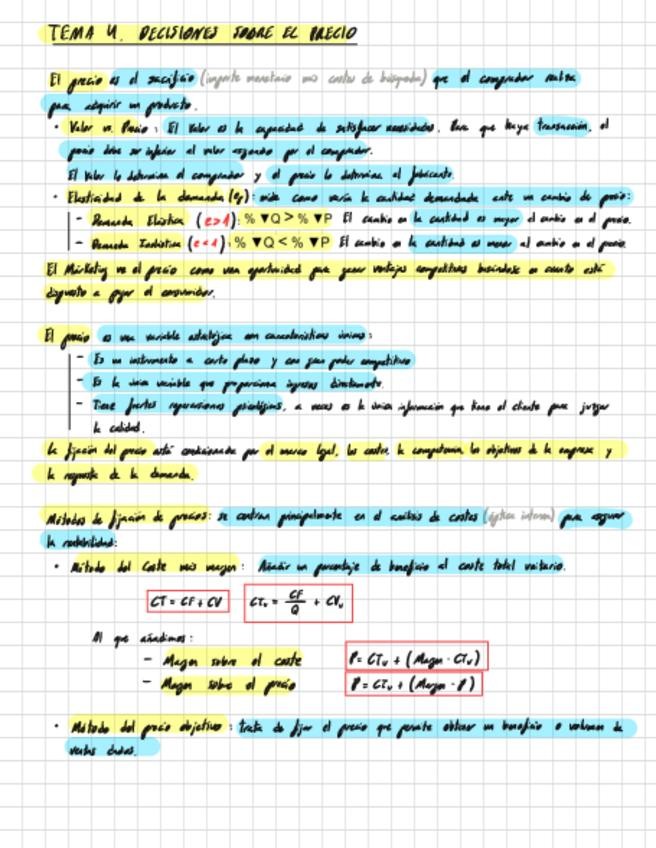 TEMA 4. DECISIONES SOBRE EL PRECIO
El precio es el sacrificio (importe monetario más costes de búsqueda) que el comprador realiza
para adquirir un producto.
· Valor vs. Precio: El valor es la capacidad de satisfacer necesidades. Para que haya transacción, el
precio debe ser inferior al valor asignado por el comprador.
El valor lo determina el comprador y el precio lo determina el fabricante.
· Elasticidad de la demanda (ep): mide como varía la cantidad demandada ante un cambio de precio:
- Demanda Elástica (e>1): % ▼Q > % ▼P El cambio en la cantidad es mayor al cambio en el precio.
- Demanda Inelástica (e<1): % ▼Q < % ▼P El cambio en la cantidad es menor al cambio en el precio.
El Marketing ve el precio como una oportunidad para ganar ventajas competitivas basándose en cuanto está
dispuesto a pagar el consumidor.
El precio es una variable estratégica con características únicas:
- Es un instrumento a corto plazo y con gran poder competitivo
- Es la única variable que proporciona ingresos directamente.
- Tiene fuertes repercusiones psicológicas, a veces es la única información que tiene el cliente para juzgar
la calidad.
La fijación del precio está condicionada por el marco legal, los costes, la competencia, los objetivos de la empresa y
la respuesta de la demanda.
Métodos de fijación de precios: se centran principalmente en el análisis de costes (óptica interna) para asegurar
la rentabilidad:
· Método del Coste más margen: Añadir un porcentaje de beneficio al coste total unitario.
CT = CF + CV CTu = CF/Q + CVu
Al que añadimos:
- Margen sobre el coste P = CTu + (Margen · CTu)
- Margen sobre el precio P = CTu + (Margen · P)
· Método del precio objetivo: trata de fijar el precio que permite obtener un beneficio o volumen de
ventas dados.